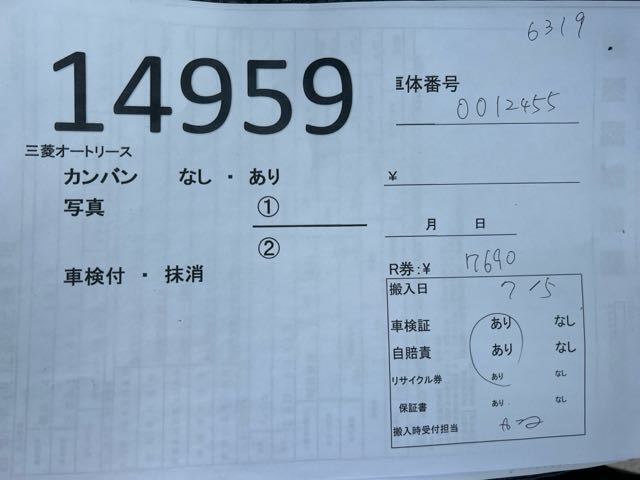 6319
14959
車体番号
0012455
三菱オートリース
カンバン なし ・ あり
¥
写真 ①
月 日
②
車検付 ・ 抹消
R券:¥ 7690
搬入日 7/5
車検証 あり なし
自賠責 あり なし
リサイクル券 あり なし
保証書 あり なし
搬入時受付担当